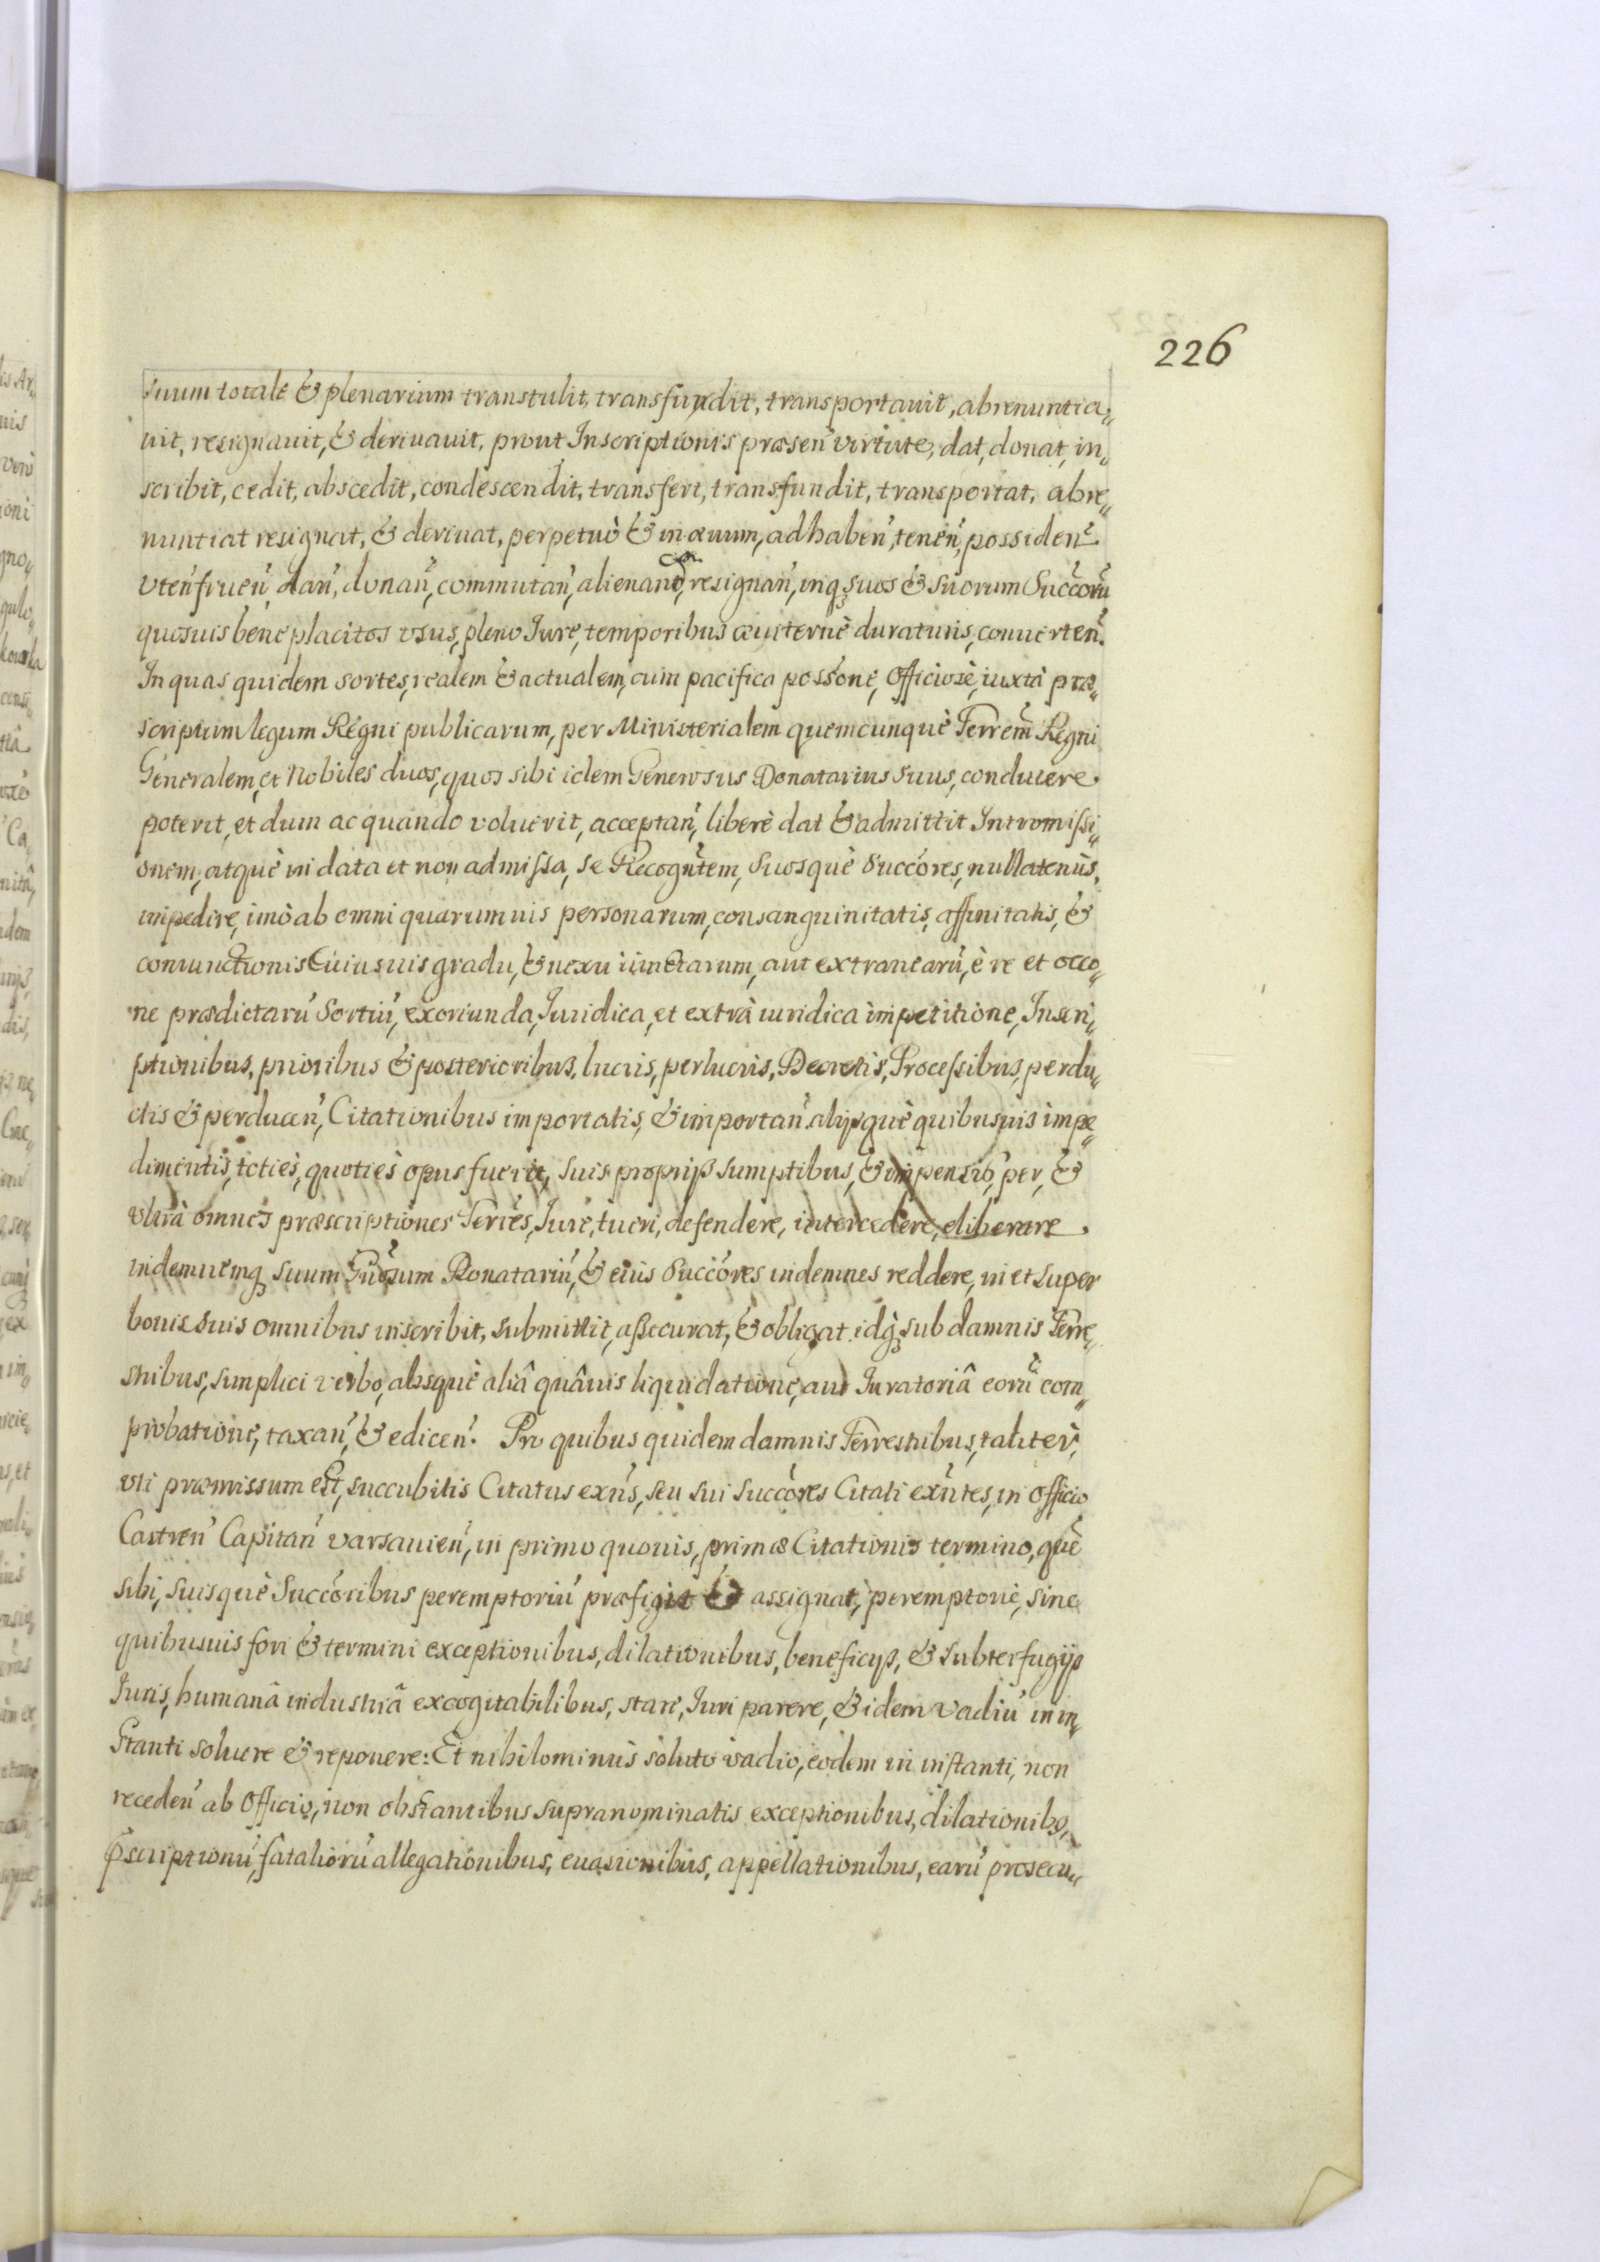 226
suum totale & plenarium transtulit, transfundit, transportauit, abrenuntia„
uit, resignauit, & deriuauit, prout Inscriptionis præsen̄ virtute, dat, donat, in„
scribit, cedit, abscedit, condescendit, transfert, transfundit, transportat, abre„
nuntiat resignat, & deriuat, perpetuò & in æuum, ad haben̄, tenen̄, possiden̄
vten̄ fruen̄, dan̄, donan̄, commutan̄, alienan̄, resignan̄, inq; suos & suorum Succorū
quosuis beneplacitos vsus, pleno Iure, temporibus æuiternè duraturis, conuerten̄.
In quas quidem sortes, realem & actualem, cum pacifica possone, Officiosè, iuxtà præ„
scriptum legum Regni publicarum, per Ministerialem quemcunquè Terrem̄ Regni
Generalem, et Nobiles duos, quos sibi idem Generosus Donatarius suus, conducere
poterit, et dum ac quando voluerit, acceptan̄, liberè dat & admittit Intromissi„
onem, atquè in data et non admissa, se Recognt̄em, Suosquè Succores, nullatenùs
impedire, imò ab omni quarumuis personarum, consanguinitatis, affinitatis, &
coniunctionis Cuiusuis gradu, & nexu iunctarum, aut extranearū, è re et occo„
ne prædictarū Sortiū, exoriunda, Iuridica, et extrà iuridica impetitione, Inscri„
ptionibus, prioribus & posterioribus, lucris, perlucris, Decretis, Processibus, perdu„
ctis & perducen̄, Citationibus importatis, & importan̄ alijsquè quibusuis impe„
dimentis, toties, quotiès opus fuerit, suis proprijs sumptibus, & impensis, per, &
vltrà omnes præscriptiones Terres, Iure, tueri, defendere, intercedere, eliberare
indemnemq; suum Gn̄osum Donatariū, & eius Succores indemnes reddere, in et super
bonis suis omnibus inscribit, submittit, assecurat, & obligat idq; sub damnis Terre„
stribus, simplici verbo, absquè aliâ quâuis liquidatione, aut Iuratoriâ eorū com„
probatione, taxan̄, & edicen̄. Pro quibus quidem damnis Terrestribus, taliter,
vti præmissum est, succubitis Citatus exn̄s, seu sui succores Citati exn̄tes, in Officio
Castren̄ Capitan̄ varsauien̄, in primo quouis, primæ Citationis termino, quē
sibi, suisquè Succoribus peremptoriū præfigit & assignat, peremptoriè, sine
quibusuis fori & termini exceptionibus, dilationibus, beneficijs, & subterfugijs
Iuris, humanâ industriâ excogitabilibus, stare, Iuri parere, & idem vadiū in in„
stanti soluere & reponere: Et nihilominùs soluto vadio, eodem in instanti, non
receden̄ ab Officio, non obstantibus supranominatis exceptionibus, dilationibs,
p̄scriptionū, fataliorū allegationibus, euasionibus, appellationibus, earū prosecu„